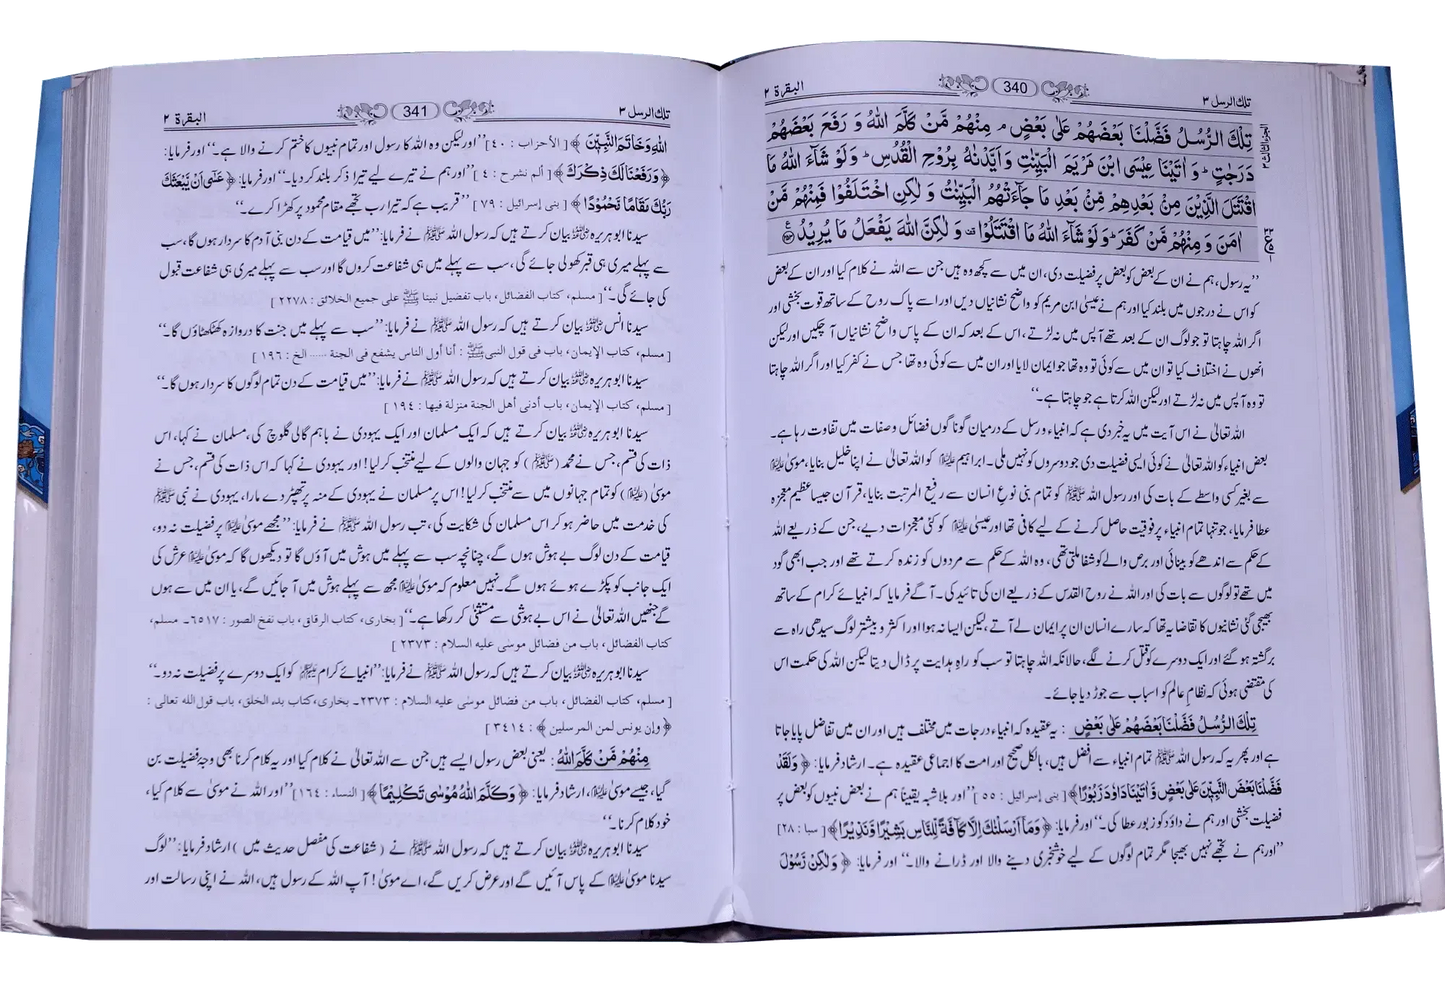 تلك الرسل ٣
340
البقرة ٢
تِلْكَ الرُّسُلُ فَضَّلْنَا بَعْضَهُمْ عَلٰى بَعْضٍ ۘ مِنْهُمْ مَّنْ كَلَّمَ اللّٰهُ وَ رَفَعَ بَعْضَهُمْ
دَرَجٰتٍ ؕ وَ اٰتَيْنَا عِيْسَى ابْنَ مَرْيَمَ الْبَيِّنٰتِ وَ اَيَّدْنٰهُ بِرُوْحِ الْقُدُسِ ؕ وَ لَوْ شَآءَ اللّٰهُ مَا
اقْتَتَلَ الَّذِيْنَ مِنْۢ بَعْدِهِمْ مِّنْۢ بَعْدِ مَا جَآءَتْهُمُ الْبَيِّنٰتُ وَ لٰكِنِ اخْتَلَفُوْا فَمِنْهُمْ مَّنْ
اٰمَنَ وَ مِنْهُمْ مَّنْ كَفَرَ ؕ وَ لَوْ شَآءَ اللّٰهُ مَا اقْتَتَلُوْا ۫ وَ لٰكِنَّ اللّٰهَ يَفْعَلُ مَا يُرِيْدُ
”یہ رسول، ہم نے ان کے بعض کو بعض پر فضیلت دی، ان میں سے کچھ وہ ہیں جن سے اللہ نے کلام کیا اور ان کے بعض
کو اس نے درجوں میں بلند کیا اور ہم نے عیسیٰ ابن مریم کو واضح نشانیاں دیں اور اسے پاک روح کے ساتھ قوت بخشی اور
اگر اللہ چاہتا تو جو لوگ ان کے بعد تھے آپس میں نہ لڑتے، اس کے بعد کہ ان کے پاس واضح نشانیاں آ چکیں اور لیکن
انھوں نے اختلاف کیا تو ان میں سے کوئی تو وہ تھا جو ایمان لایا اور ان میں سے کوئی وہ تھا جس نے کفر کیا اور اگر اللہ چاہتا
تو وہ آپس میں نہ لڑتے اور لیکن اللہ کرتا ہے جو چاہتا ہے۔“
اللہ تعالیٰ نے اس آیت میں یہ خبر دی ہے کہ انبیاء و رسل کے درمیان گوناگوں فضائل و صفات میں تفاوت رہا ہے۔
بعض انبیاء کو اللہ تعالیٰ نے کوئی ایسی فضیلت دی جو دوسروں کو نہیں ملی۔ ابراہیم علیہ السلام کو اللہ تعالیٰ نے اپنا خلیل بنایا، موسیٰ علیہ السلام
سے بغیر کسی واسطے کے بات کی اور رسول اللہ ﷺ کو تمام بنی نوع انسان سے رفیع المرتبت بنایا، قرآن جیسا عظیم معجزہ
عطا فرمایا، جو تنہا تمام انبیاء پر فوقیت حاصل کرنے کے لیے کافی تھا اور عیسیٰ علیہ السلام کو کئی معجزات دیے، جن کے ذریعے اللہ
کے حکم سے اندھے کو بینائی اور برص والے کو شفا ملتی تھی، وہ اللہ کے حکم سے مردوں کو زندہ کرتے تھے اور جب ابھی گود
میں تھے تو لوگوں سے بات کی اور اللہ نے روح القدس کے ذریعے ان کی تائید کی۔ آگے فرمایا کہ انبیائے کرام کے ساتھ
بھیجی گئی نشانیوں کا تقاضا یہ تھا کہ سارے انسان ان پر ایمان لے آتے، لیکن ایسا نہ ہوا اور اکثر و بیشتر لوگ سیدھی راہ سے
برگشتہ ہو گئے اور ایک دوسرے کو قتل کرنے لگے، حالانکہ اللہ چاہتا تو سب کو راہِ ہدایت پر ڈال دیتا لیکن اللہ کی حکمت اس
کی مقتضی ہوئی کہ نظامِ عالم کو اسباب سے جوڑ دیا جائے۔
تِلْكَ الرُّسُلُ فَضَّلْنَا بَعْضَهُمْ عَلٰى بَعْضٍ : یہ عقیدہ کہ انبیاء درجات میں مختلف ہیں اور ان میں تفاضل پایا جاتا
ہے اور پھر یہ کہ رسول اللہ ﷺ تمام انبیاء سے افضل ہیں، بالکل صحیح اور امت کا اجماعی عقیدہ ہے۔ ارشاد فرمایا: ﴿ وَلَقَدْ
فَضَّلْنَا بَعْضَ النَّبِيّٖنَ عَلٰى بَعْضٍ وَّ اٰتَيْنَا دَاوٗدَ زَبُوْرًا ﴾ [ بنی إسرائیل : ٥٥ ] ”اور بلاشبہ یقیناً ہم نے بعض نبیوں کو بعض پر
فضیلت بخشی اور ہم نے داؤد کو زبور عطا کی۔“ اور فرمایا: ﴿ وَمَاۤ اَرْسَلْنٰكَ اِلَّا كَآفَّةً لِّلنَّاسِ بَشِيْرًا وَّ نَذِيْرًا ﴾ [ سبا : ٢٨ ]
”اور ہم نے تجھے نہیں بھیجا مگر تمام لوگوں کے لیے خوشخبری دینے والا اور ڈرانے والا۔“ اور فرمایا: ﴿ وَ لٰكِنْ رَّسُوْلَ
تلك الرسل ٣
341
البقرة ٢
اللّٰهِ وَ خَاتَمَ النَّبِيّٖنَ ﴾ [ الأحزاب : ٤٠ ] ”اور لیکن وہ اللہ کا رسول اور تمام نبیوں کا ختم کرنے والا ہے۔“ اور فرمایا:
﴿ وَ رَفَعْنَا لَكَ ذِكْرَكَ ﴾ [ ألم نشرح : ٤ ] ”اور ہم نے تیرے لیے تیرا ذکر بلند کر دیا۔“ اور فرمایا: ﴿ عَسٰۤى اَنْ يَّبْعَثَكَ
رَبُّكَ مَقَامًا مَّحْمُوْدًا ﴾ [ بنی إسرائیل : ٧٩ ] ”قریب ہے کہ تیرا رب تجھے مقام محمود پر کھڑا کرے۔“
سیدنا ابوہریرہ رضی اللہ عنہ بیان کرتے ہیں کہ رسول اللہ ﷺ نے فرمایا: ”میں قیامت کے دن بنی آدم کا سردار ہوں گا، سب
سے پہلے میری ہی قبر کھولی جائے گی، سب سے پہلے میں ہی شفاعت کروں گا اور سب سے پہلے میری ہی شفاعت قبول
کی جائے گی۔“ [ مسلم، کتاب الفضائل، باب تفضیل نبینا ﷺ علی جمیع الخلائق : ٢٢٧٨ ]
سیدنا انس رضی اللہ عنہ بیان کرتے ہیں کہ رسول اللہ ﷺ نے فرمایا: ”سب سے پہلے میں جنت کا دروازہ کھٹکھٹاؤں گا۔“
[ مسلم، کتاب الإیمان، باب فی قول النبی ﷺ : أنا أول الناس یشفع فی الجنة ..... الخ : ١٩٦ ]
سیدنا ابوہریرہ رضی اللہ عنہ بیان کرتے ہیں کہ رسول اللہ ﷺ نے فرمایا: ”میں قیامت کے دن تمام لوگوں کا سردار ہوں گا۔“
[ مسلم، کتاب الإیمان، باب أدنی أهل الجنة منزلة فیها : ١٩٤ ]
سیدنا ابوہریرہ رضی اللہ عنہ بیان کرتے ہیں کہ ایک مسلمان اور ایک یہودی نے باہم گالی گلوچ کی، مسلمان نے کہا، اس
ذات کی قسم، جس نے محمد (ﷺ) کو جہان والوں کے لیے منتخب کر لیا! اور یہودی نے کہا کہ اس ذات کی قسم، جس نے
موسیٰ (علیہ السلام) کو تمام جہانوں میں سے منتخب کر لیا! اس پر مسلمان نے یہودی کے منہ پر تھپڑ دے مارا، یہودی نے نبی ﷺ
کی خدمت میں حاضر ہو کر اس مسلمان کی شکایت کی، تب رسول اللہ ﷺ نے فرمایا: ”مجھے موسیٰ علیہ السلام پر فضیلت نہ دو،
قیامت کے دن لوگ بے ہوش ہوں گے، چنانچہ سب سے پہلے میں ہوش میں آؤں گا تو دیکھوں گا کہ موسیٰ علیہ السلام عرش کی
ایک جانب کو پکڑے ہوئے ہوں گے۔ نہیں معلوم کہ موسیٰ علیہ السلام مجھ سے پہلے ہوش میں آ جائیں گے، یا ان میں سے ہوں
گے جنھیں اللہ تعالیٰ نے اس بے ہوشی سے مستثنیٰ کر رکھا ہے۔“ [ بخاری، کتاب الرقاق، باب نفخ الصور : ٦٥١٧۔ مسلم،
کتاب الفضائل، باب من فضائل موسی علیه السلام : ٢٣٧٣ ]
سیدنا ابوہریرہ رضی اللہ عنہ بیان کرتے ہیں کہ رسول اللہ ﷺ نے فرمایا: ”انبیائے کرام علیہم السلام کو ایک دوسرے پر فضیلت نہ دو۔“
[ مسلم، کتاب الفضائل، باب من فضائل موسی علیه السلام : ٢٣٧٣۔ بخاری، کتاب بدء الخلق، باب قول الله تعالی :
﴿ وإن یونس لمن المرسلین ﴾ : ٣٤١٤ ]
مِنْهُمْ مَّنْ كَلَّمَ اللّٰهُ : یعنی بعض رسول ایسے ہیں جن سے اللہ تعالیٰ نے کلام کیا اور یہ کلام کرنا بھی وجہ فضیلت بن
گیا، جیسے موسیٰ علیہ السلام، ارشاد فرمایا: ﴿ وَ كَلَّمَ اللّٰهُ مُوْسٰى تَكْلِيْمًا ﴾ [ النساء : ١٦٤ ] ”اور اللہ نے موسیٰ سے کلام کیا،
خود کلام کرنا۔“
سیدنا ابوہریرہ رضی اللہ عنہ بیان کرتے ہیں کہ رسول اللہ ﷺ نے ( شفاعت کی مفصل حدیث میں ) ارشاد فرمایا: ”لوگ
سیدنا موسیٰ علیہ السلام کے پاس آئیں گے اور عرض کریں گے، اے موسیٰ! آپ اللہ کے رسول ہیں، اللہ نے اپنی رسالت اور